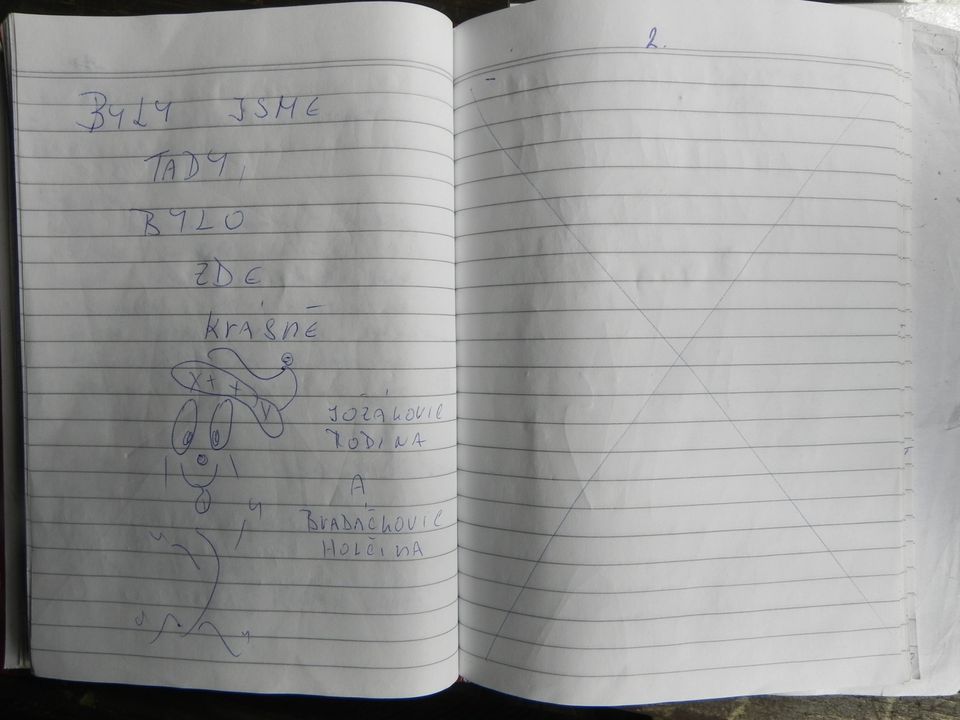 BYLY JSME
TADY,
BYLO
ZDE
KRÁSNĚ
JOŽÁKOVIC
RODINA
A
BRADÁČKOVIC
HOLČINA
2.